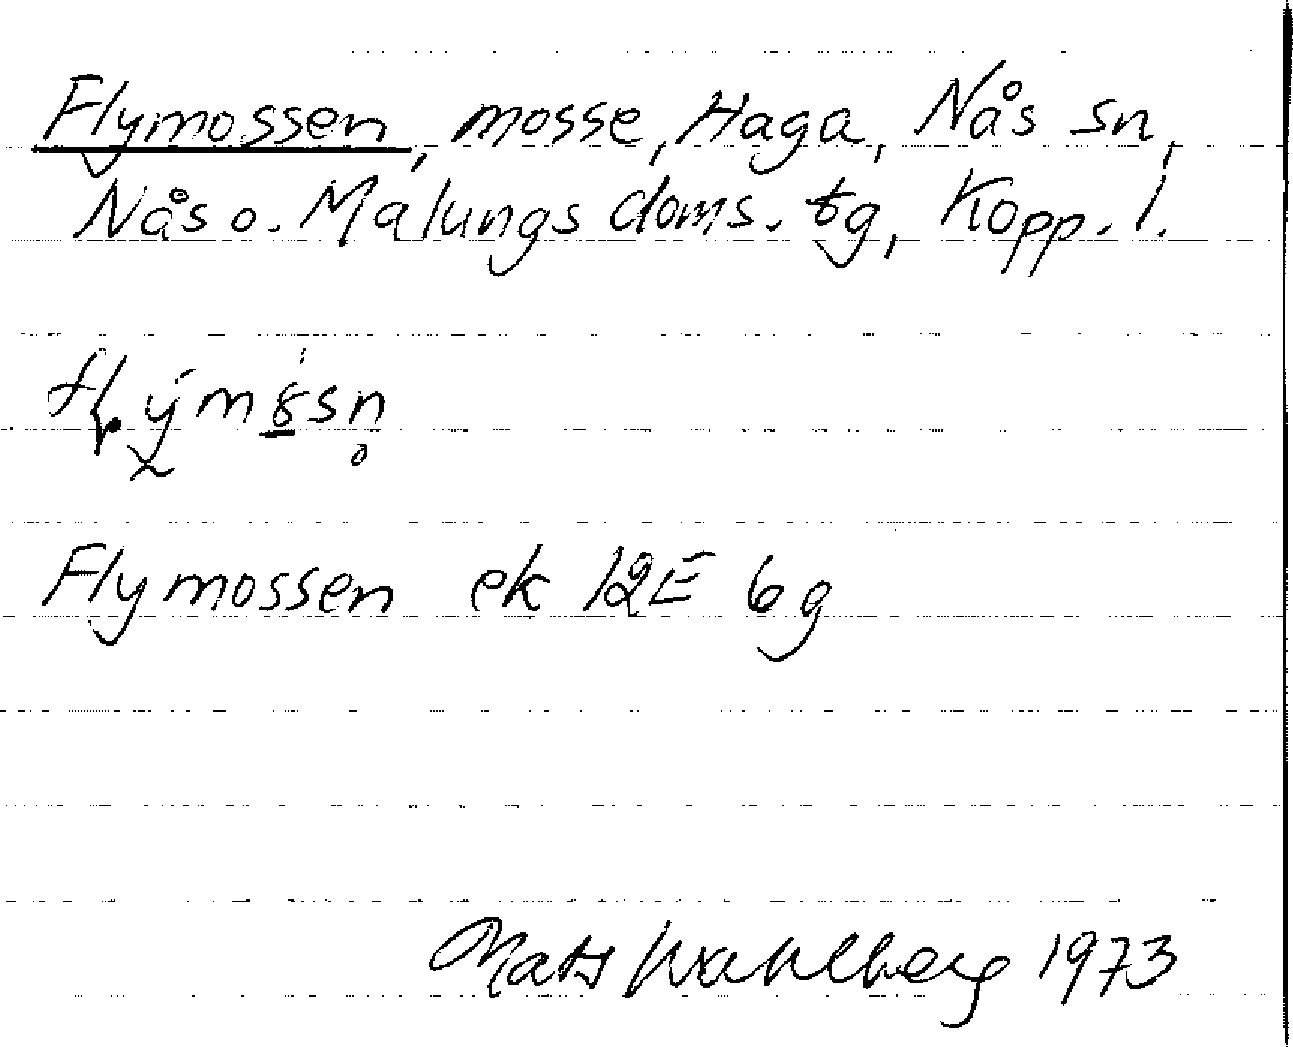 Flymossen, mosse, Haga, Nås sn,
Nås o. Malungs doms. tg, Kopp. l.
Flymossen ek 12E 6g
Mats Wahlberg 1973